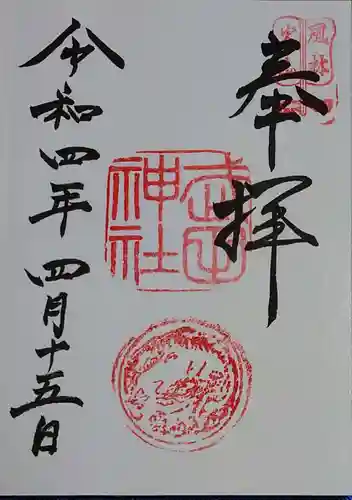 奉拝
武田神社
令和四年四月十五日